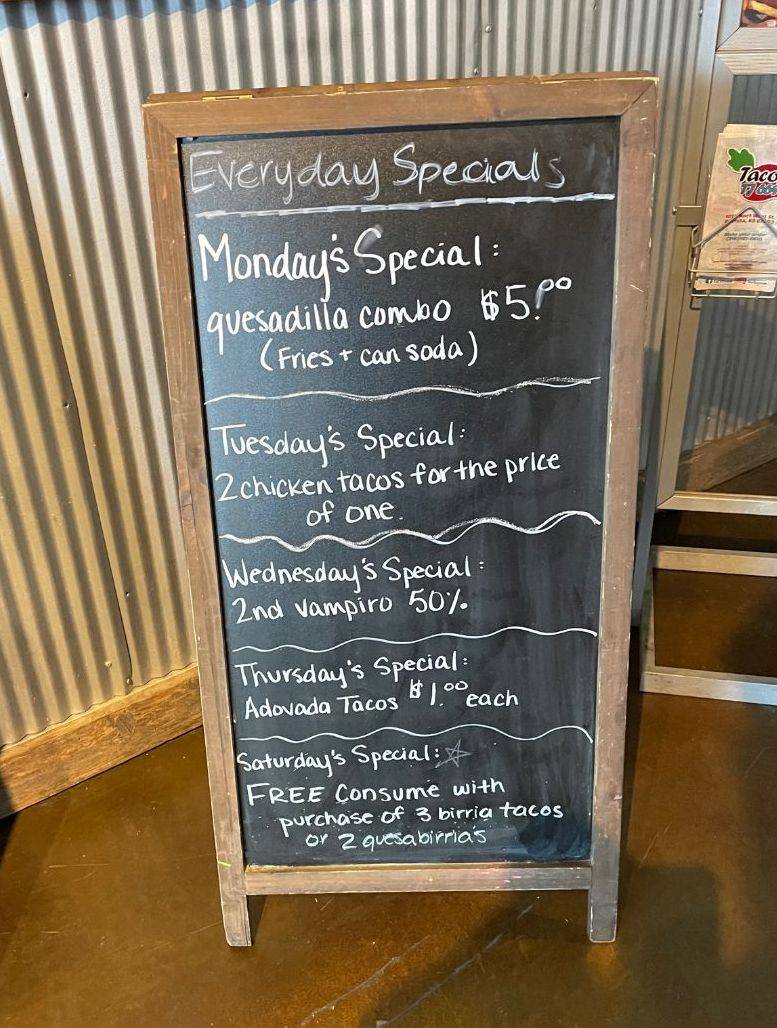 Everyday Specials
Monday's Special:
quesadilla combo $5.00
(Fries + can soda)
Tuesday's Special:
2 chicken tacos for the price
of one.
Wednesday's Special:
2nd vampiro 50%
Thursday's Special:
Adovada Tacos $1.00 each
Saturday's Special:
FREE Consume with
purchase of 3 birria tacos
or 2 quesabirria's
Taco